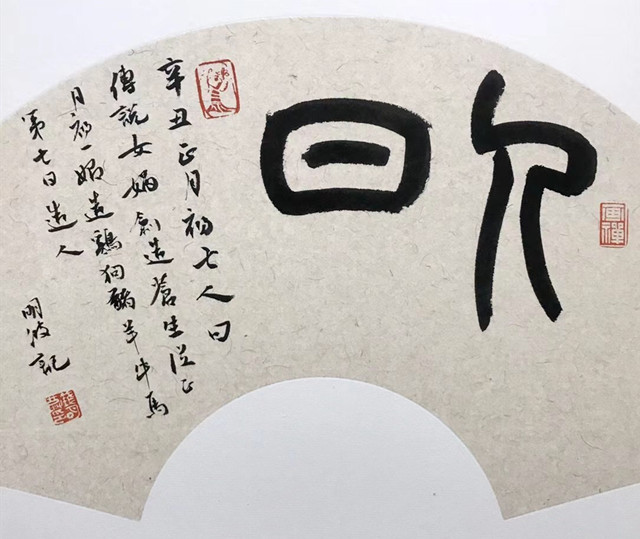 人日
辛丑正月初七人日
傳說女媧創造蒼生從正
月初一始造鷄狗豬羊牛馬
第七日造人
明波記